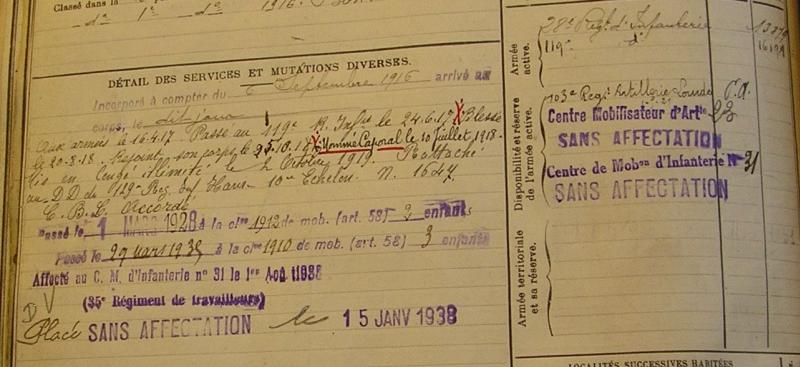 Classé dans la
1916
DÉTAIL DES SERVICES ET MUTATIONS DIVERSES.
Incorporé à compter du 6 Septembre 1916 arrivé au
corps, le dit jour
Aux armées le 16.4.17 Passé au 119e R. Infie le 24.6.17 X Blessé
le 20-8-18. Rejoint son corps le 25.10.18 X Nommé Caporal le 10 juillet 1918.
Mis en congé illimité le 2 Octobre 1919. Rattaché
au D.D. du 129e Rég. Inf. Havre 10e Echelon. N. 1647
C. B. C. Accordé
Passé le 1 MARS 1928 à la clsse 1912 de mob. (art. 58) 2 enfants
Passé le 29 mars 1935 à la clsse 1910 de mob. (art. 58) 3 enfants
Affecté au C. M. d'Infanterie n° 31 le 1er Aoû 1938
(35e Régiment de travailleurs)
DV
Placé SANS AFFECTATION le 15 JANV 1938
Armée active.
28e Régt d'Infanterie
119e do
Disponibilité et réserve de l'armée active.
103e Régt Artillerie Lourde P.A.
Centre Mobilisateur d'Artie 23
SANS AFFECTATION
Centre de Mobon d'Infanterie N° 31
SANS AFFECTATION
Armée territoriale et sa réserve.
LOCALITÉS SUCCESSIVES HABITÉES